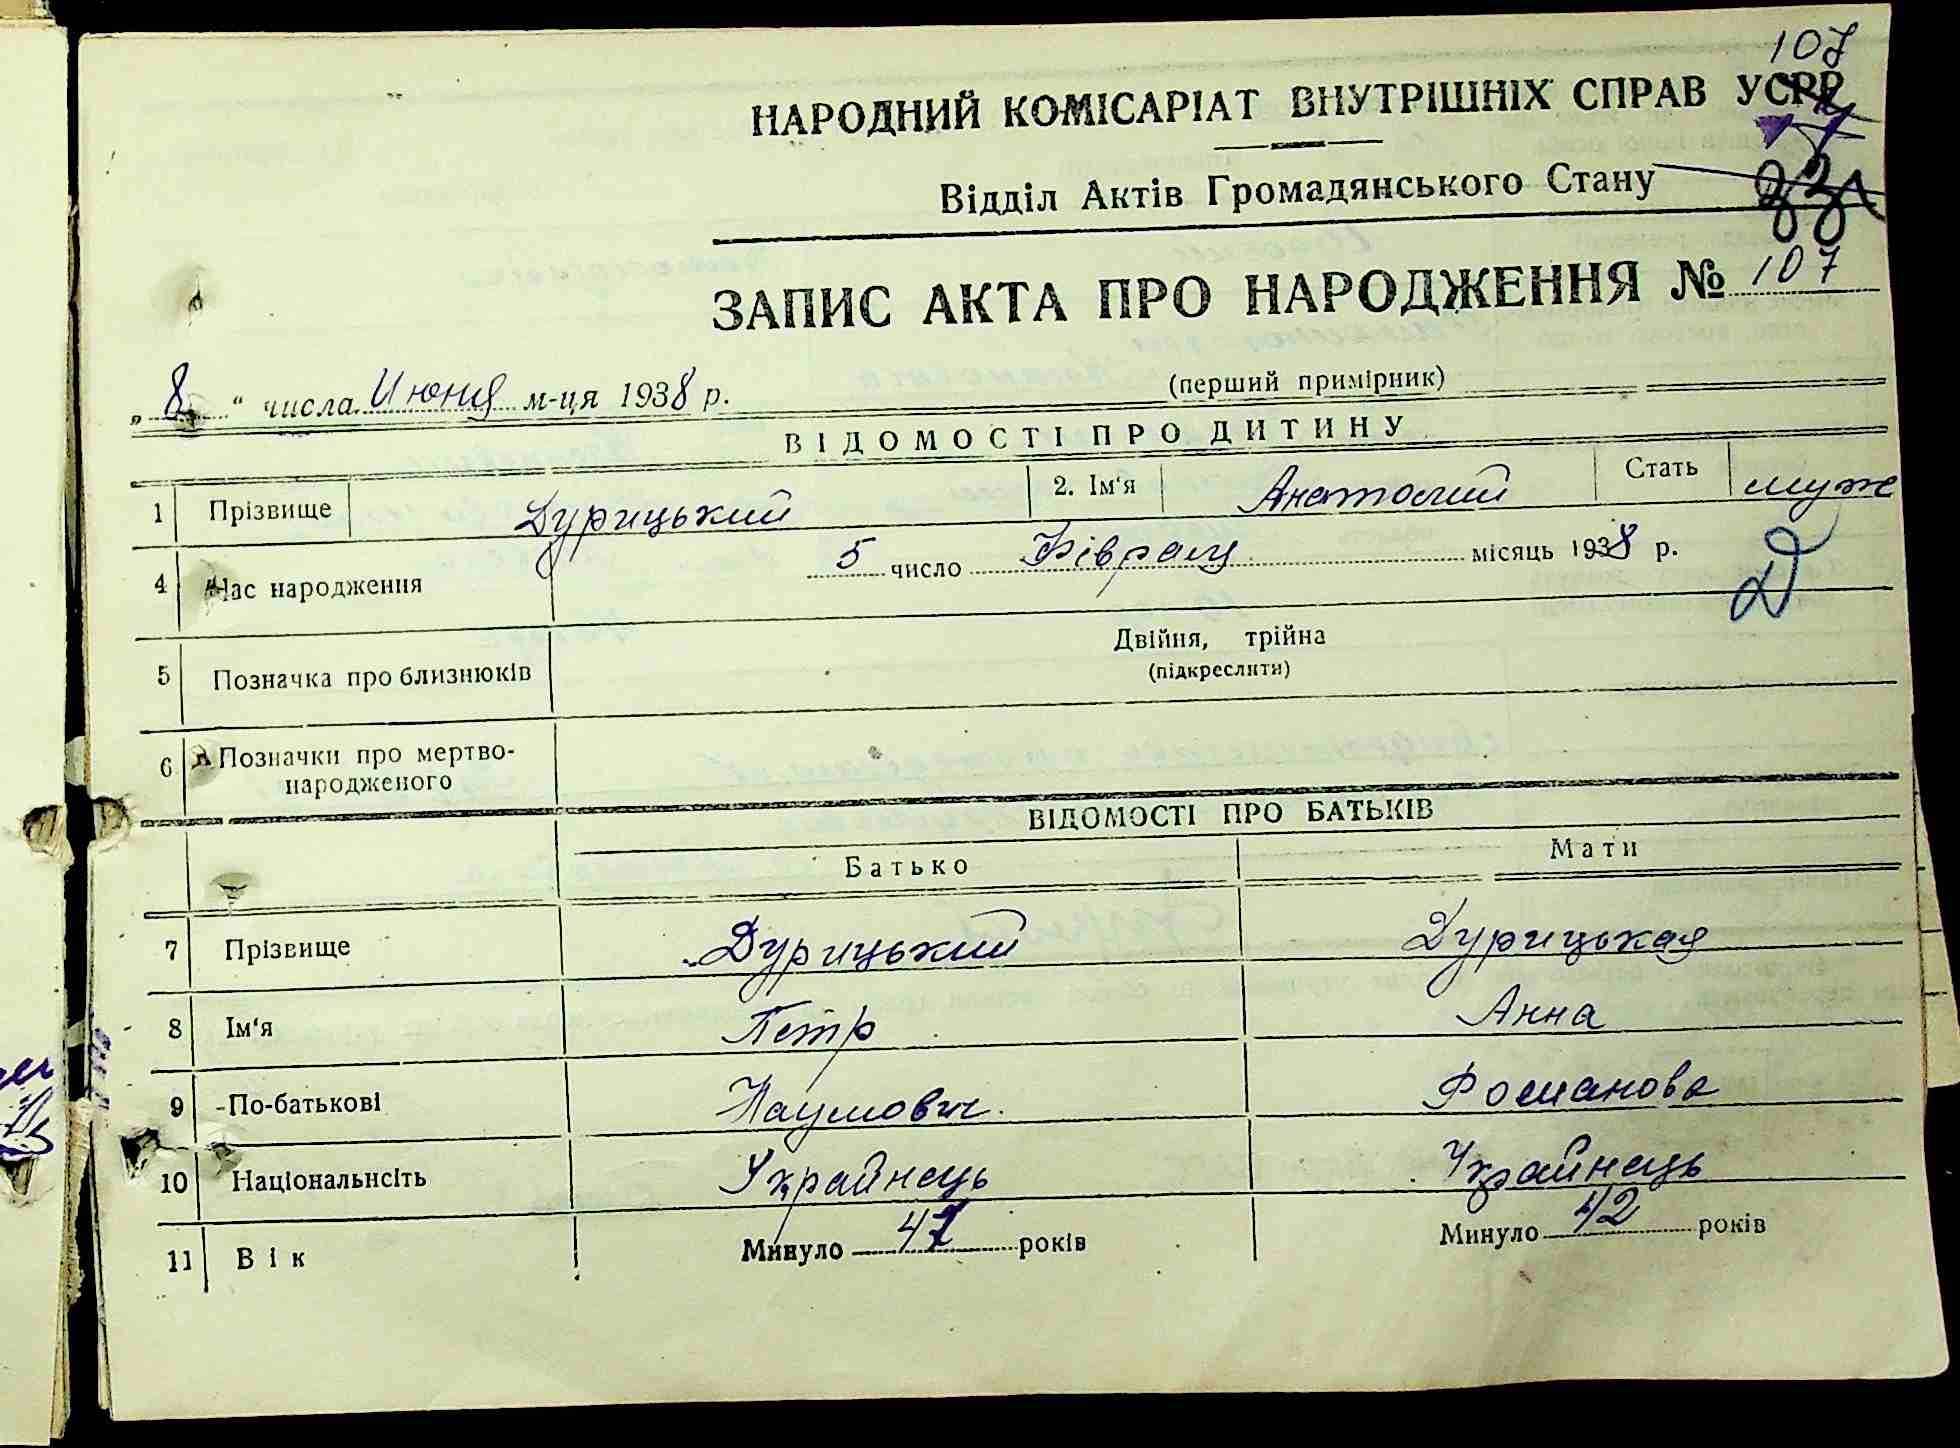 107
НАРОДНИЙ КОМІСАРІАТ ВНУТРІШНІХ СПРАВ УСРР
Відділ Актів Громадянського Стану
ЗАПИС АКТА ПРО НАРОДЖЕННЯ № 107
„8“ числа Июня м-ця 1938 р.
(перший примірник)
ВІДОМОСТІ ПРО ДИТИНУ
1 Прізвище Дурицький 2. Ім'я Анатолий Стать муж
4 Час народження 5 число Февраля місяць 1938 р.
5 Позначка про близнюків Двійня, трійна
(підкреслити)
6 Позначки про мертво-
народженого
ВІДОМОСТІ ПРО БАТЬКІВ
Батько Мати
7 Прізвище Дурицький Дурицькая
8 Ім'я Петр Анна
9 -По-батькові Наумович. Романова
10 Національнсіть Украйнець Украйнець
11 Вік Минуло 41 років Минуло 42 років